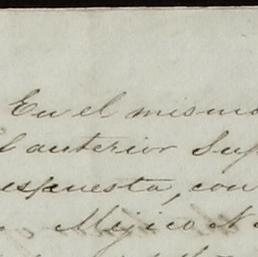 En el mismo
l anterior Sup
espuesta, con
Mejico N